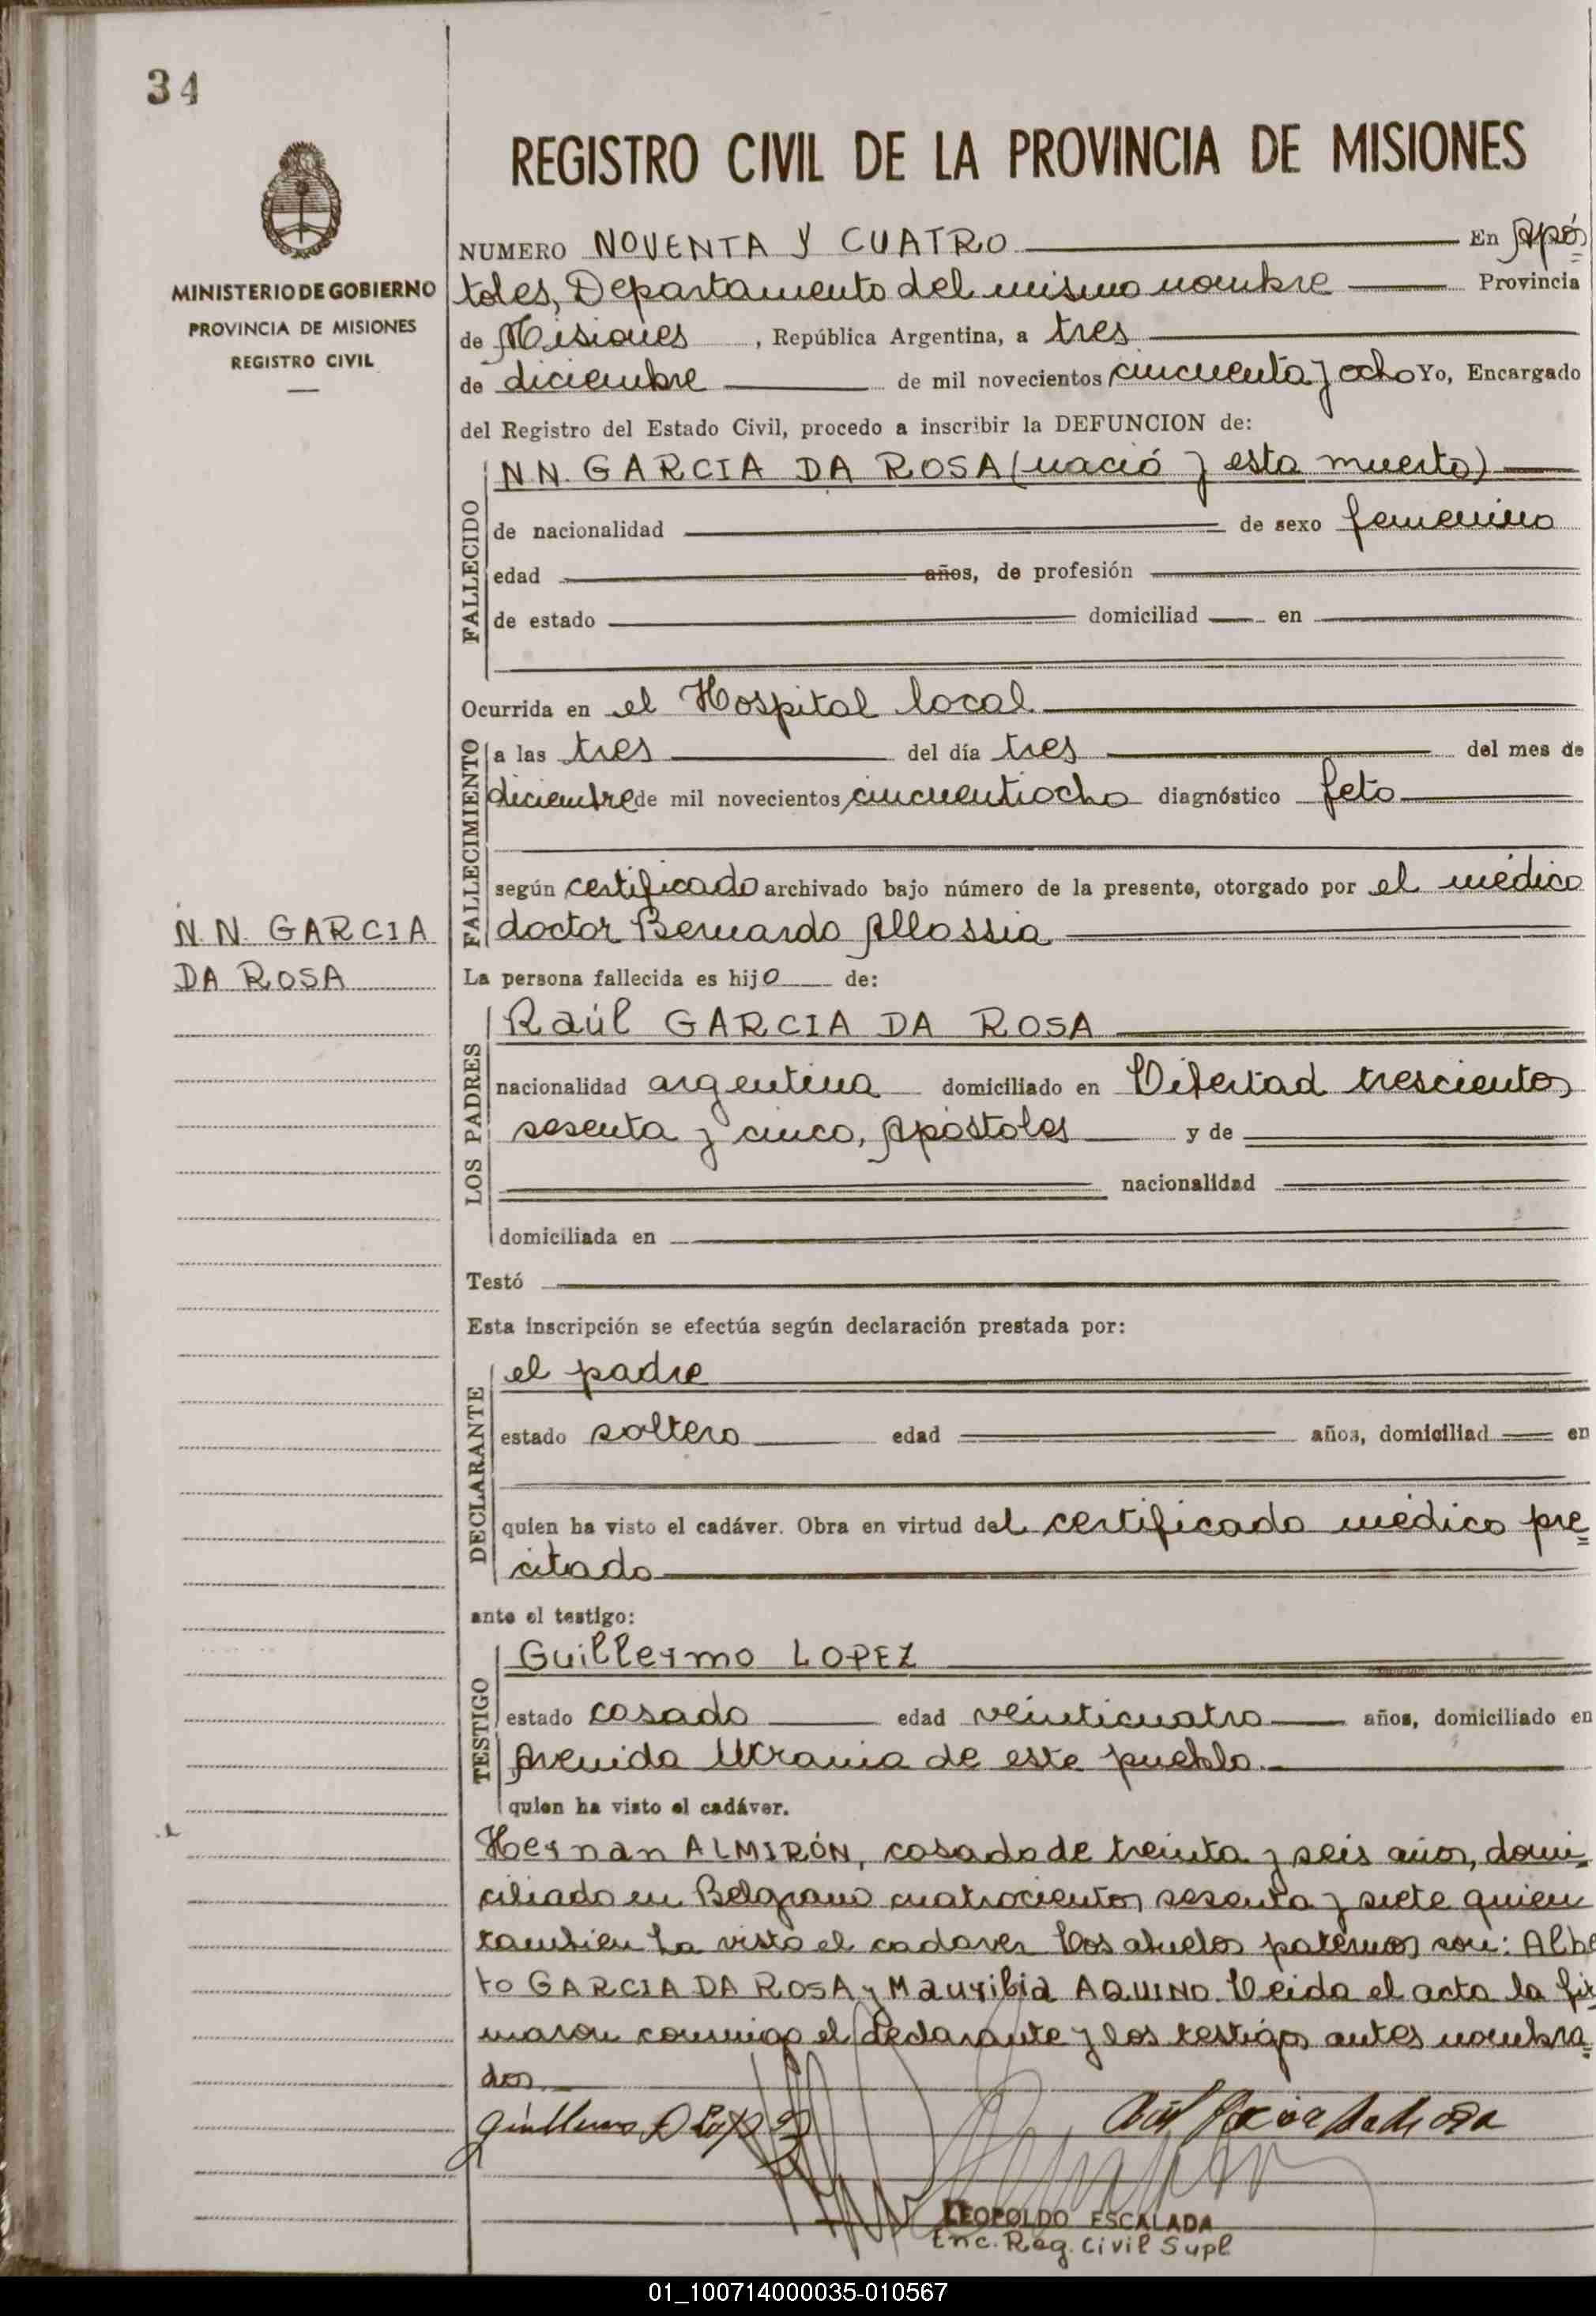 34
MINISTERIO DE GOBIERNO
PROVINCIA DE MISIONES
REGISTRO CIVIL
REGISTRO CIVIL DE LA PROVINCIA DE MISIONES
NUMERO NOVENTA Y CUATRO En Após=
toles, Departamento del mismo nombre Provincia
de Misiones, República Argentina, a tres
de diciembre de mil novecientos cincuenta y ocho Yo, Encargado
del Registro del Estado Civil, procedo a inscribir la DEFUNCION de:
FALLECIDO
N.N. GARCIA DA ROSA (nació y esta muerto)
de nacionalidad de sexo femenino
edad años, de profesión
de estado domiciliad en
Ocurrida en el Hospital local
FALLECIMIENTO
a las tres del día tres del mes de
diciembre de mil novecientos cincuentiocho diagnóstico feto
según certificado archivado bajo número de la presente, otorgado por el médico
doctor Bernardo Allossia
N.N. GARCIA
DA ROSA
La persona fallecida es hijo de:
LOS PADRES
Raúl GARCIA DA ROSA
nacionalidad argentina domiciliado en Libertad trescientos
sesenta y cinco, Apóstoles y de
nacionalidad
domiciliada en
Testó
Esta inscripción se efectúa según declaración prestada por:
DECLARANTE
el padre
estado soltero edad años, domiciliad en
quien ha visto el cadáver. Obra en virtud del certificado médico pre=
citado
ante el testigo:
TESTIGO
Guillermo LOPEZ
estado casado edad veinticuatro años, domiciliado en
Avenida Ucrania de este pueblo.
quien ha visto el cadáver.
Hernan ALMIRÓN, casado de treinta y seis años, domi=
ciliado en Belgrano cuatrocientos sesenta y siete quien
tambien ha visto el cadaver Los abuelos paternos son: Albe
to GARCIA DA ROSA y Mauribia AQUINO. Leida el acta la fir
maron conmigo el declarante y los testigos antes nombra=
dos
LEOPOLDO ESCALADA
Enc. Reg. Civil Supl
01_100714000035-010567